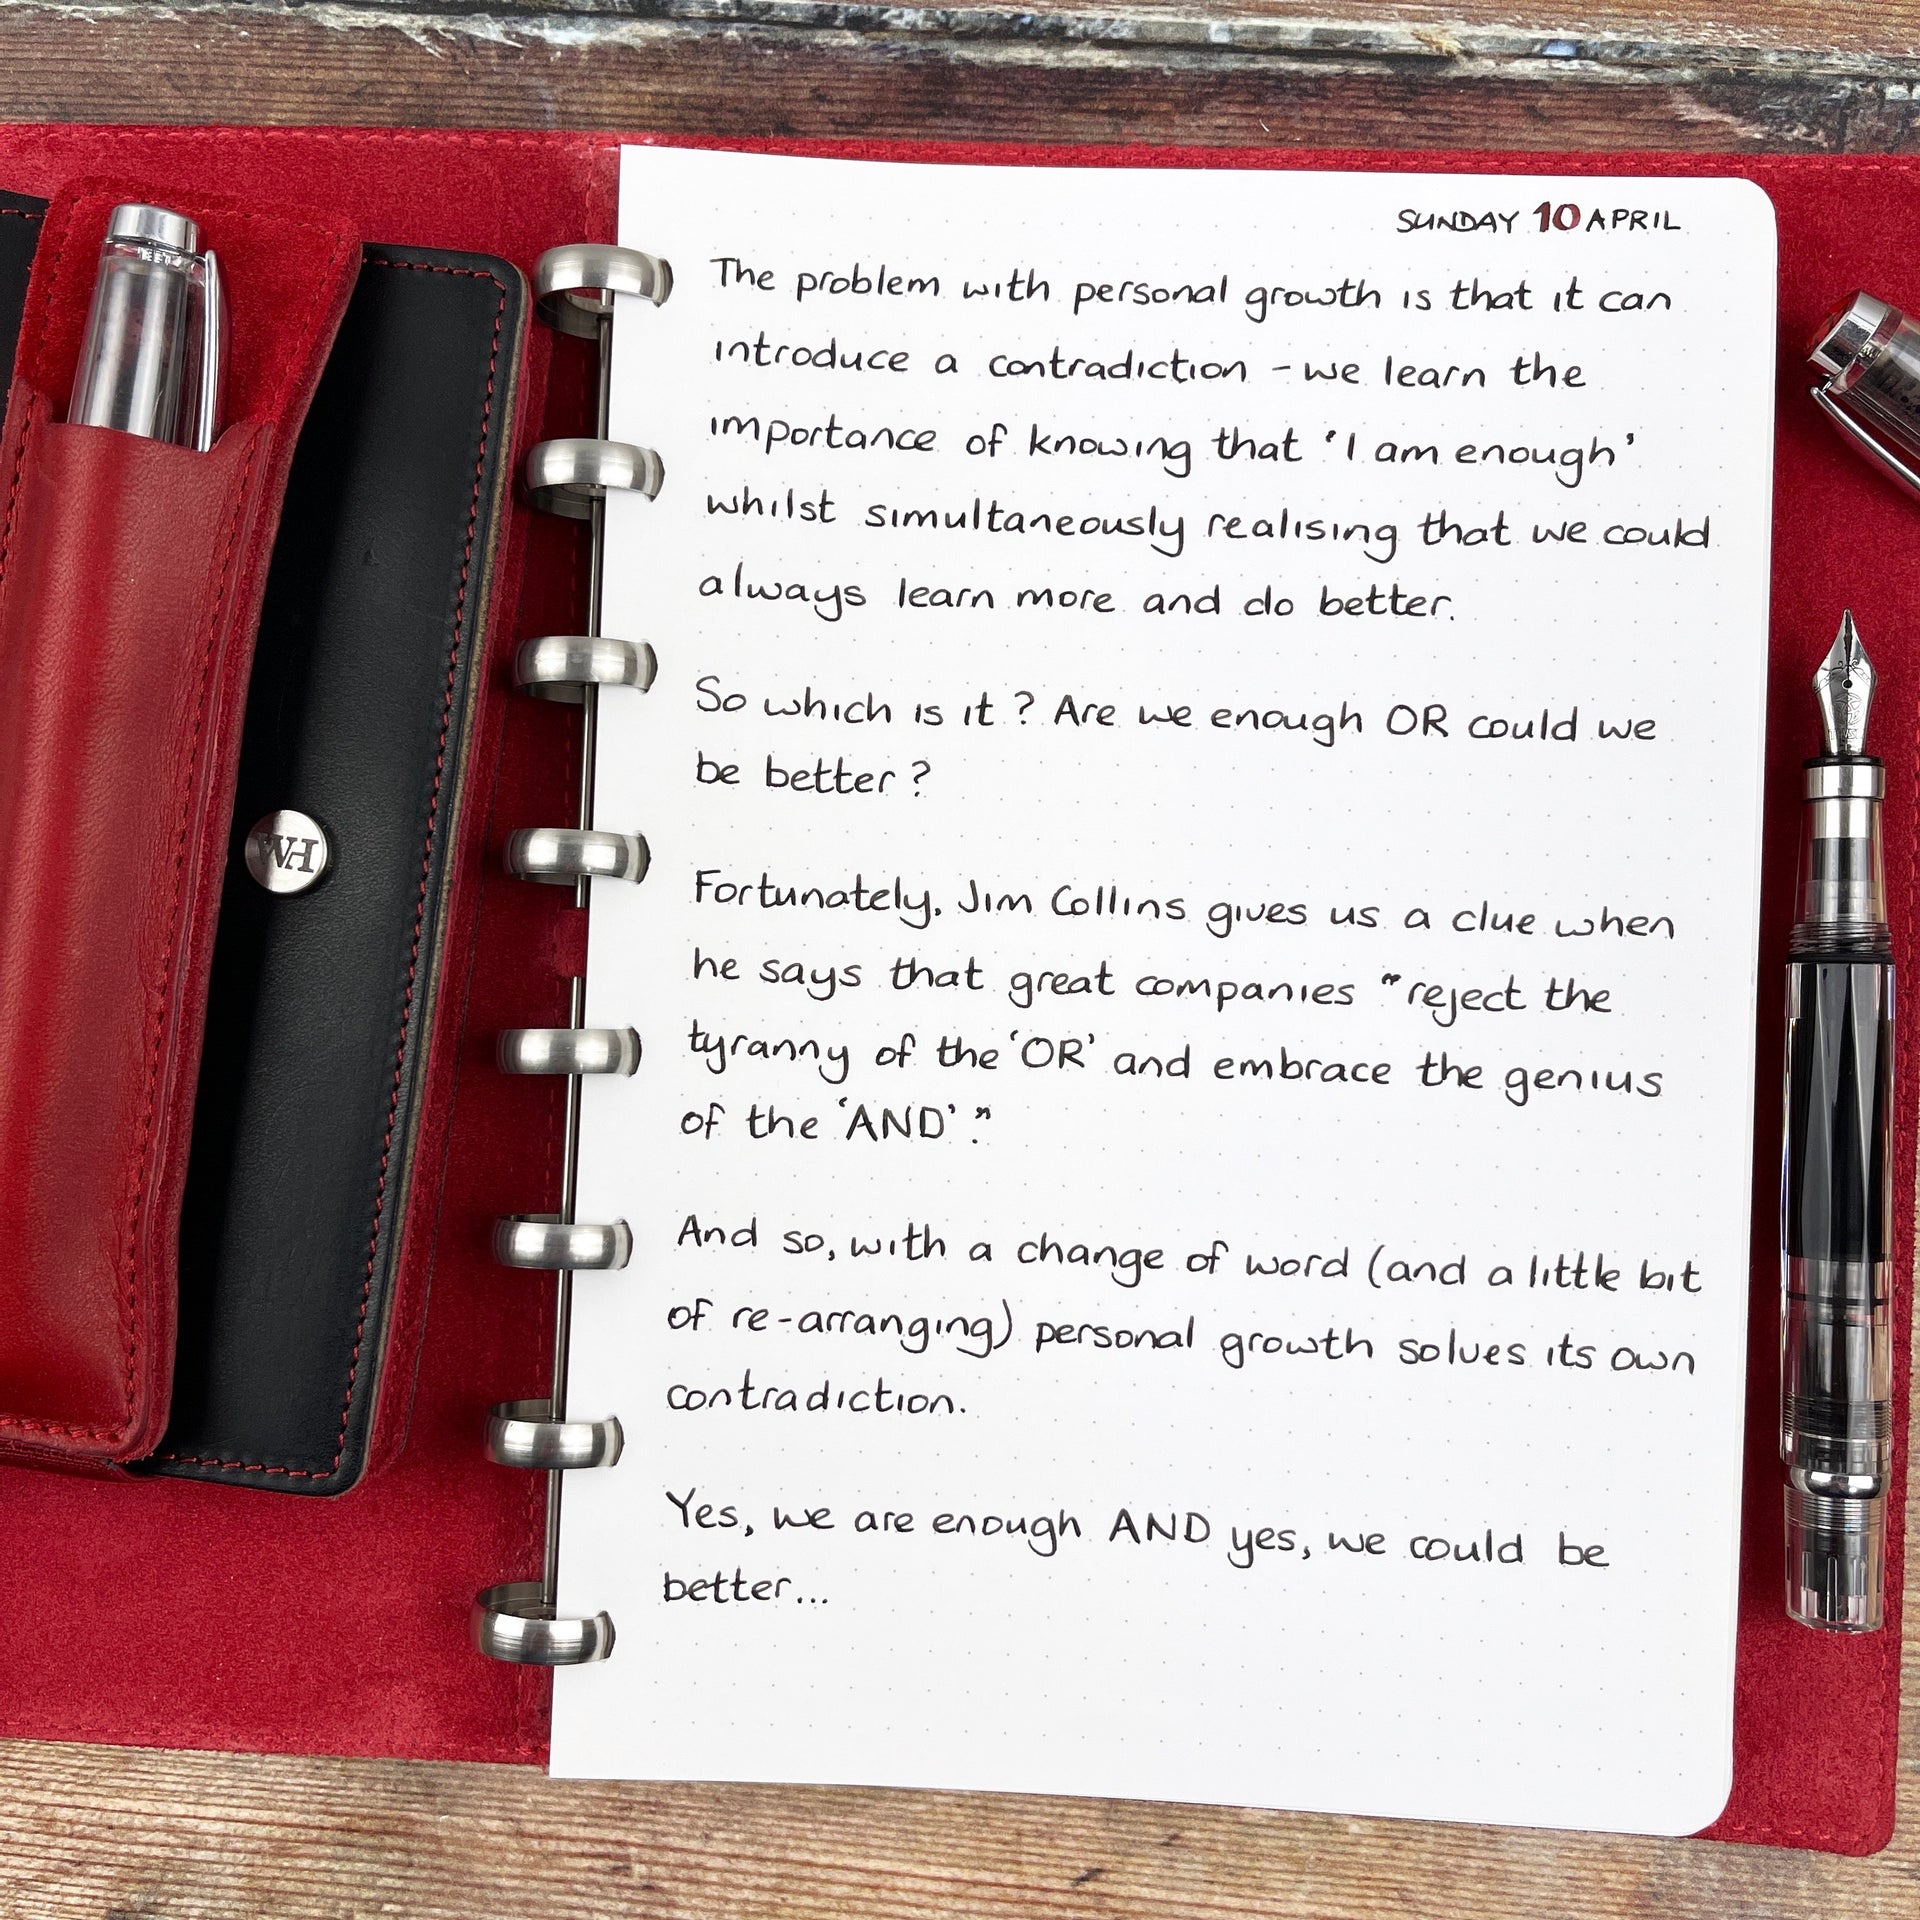 SUNDAY 10 APRIL
The problem with personal growth is that it can
introduce a contradiction - we learn the
importance of knowing that 'I am enough'
whilst simultaneously realising that we could
always learn more and do better.
So which is it? Are we enough OR could we
be better?
Fortunately, Jim Collins gives us a clue when
he says that great companies "reject the
tyranny of the 'OR' and embrace the genius
of the 'AND'."
And so, with a change of word (and a little bit
of re-arranging) personal growth solves its own
contradiction.
Yes, we are enough AND yes, we could be
better...
WH